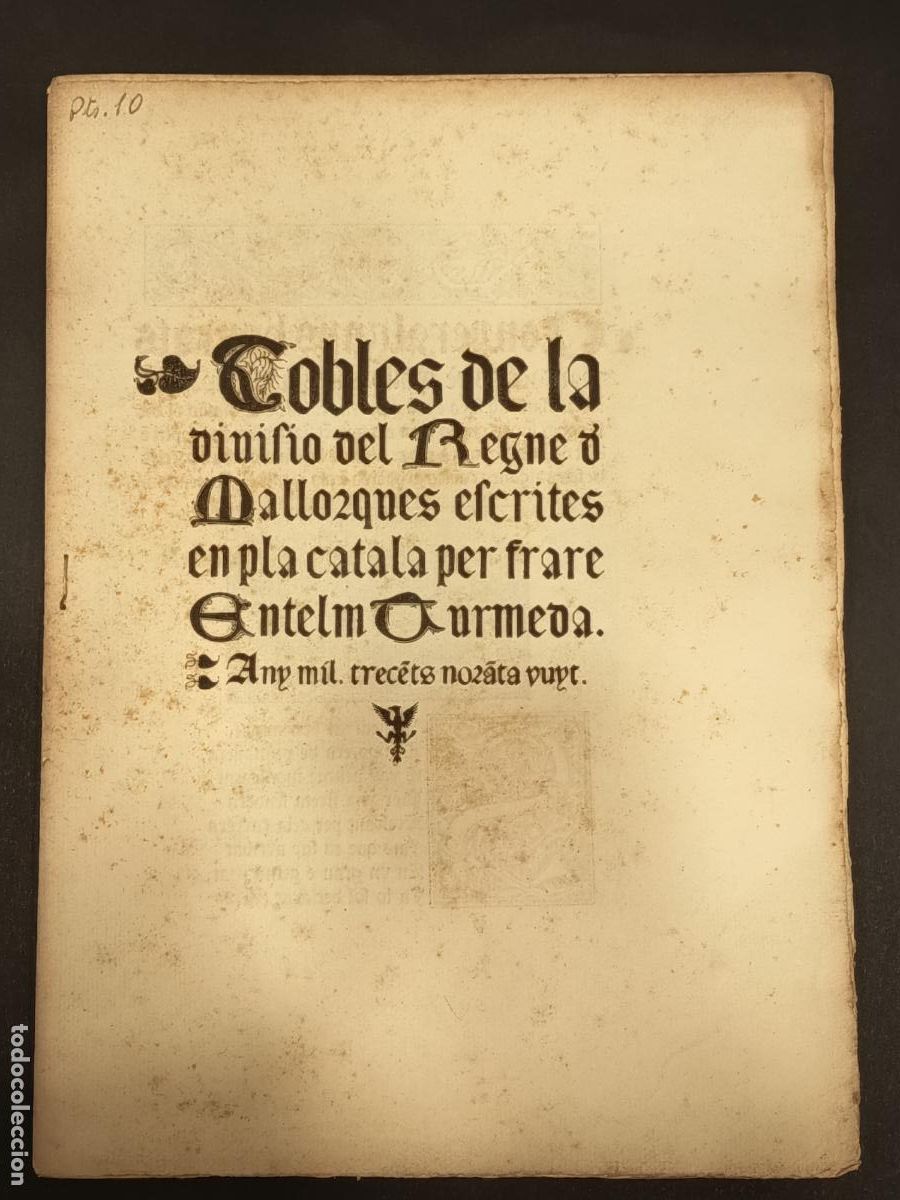 Pts. 10
Cobles de la
diuiſio del Regne đ
Mallorques eſcrites
en pla catala per frare
Entelm Turmeda.
Any mil. trecẽts norãta vuyt.
todocoleccion